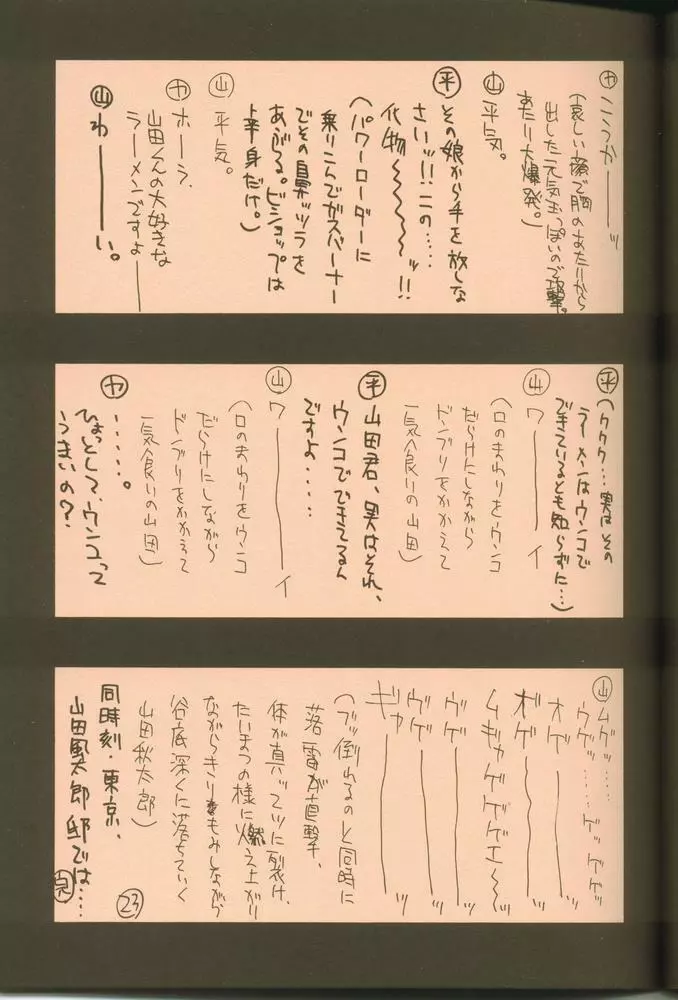 ヤ こうかーーッ
(哀しい顔で胸のあたりから
出した元気玉っぽいので攻撃。
あたり大爆発。)
山 平気。
平 その娘から手を放しな
さいッ!!この……
化物〜〜〜〜ッ!!
(パワーローダーに
乗りこんでガスバーナー
でその鼻ッツラを
あぶる。ビショップは
上半身だけ。)
山 平気。
ヤ ホーラ、
山田くんの大好きな
ラーメンですよ——
山 わ———い。
平 (ククク…実はその
ラーメンはウンコで
できているとも知らずに…)
山 ワ———イ
(口のまわりをウンコ
だらけにしながら
ドンブリをかかえて
一気食いの山田)
平 山田君、実はそれ、
ウンコでできてるん
ですよ……
山 ワ———イ
(口のまわりをウンコ
だらけにしながら
ドンブリをかかえて
一気食いの山田)
ヤ ……。
ひょっとして、ウンコって
うまいの?
山 ムゲッ……
ウゲッ……ゲッゲゲッ
オゲ———ッ
オゲ———ッ
ムギャゲゲゲエ〜〜ッ
ウゲ———ッ
ウゲ———ッ
ギャ———ッ
(ブッ倒れるのと同時に
落雷が直撃、
体が真ッ二ツに裂け、
たいまつの様に燃え上がり
ながらきりもみしながら
谷底深くに落ちていく
山田秋太郎)
同時刻・東京、
山田風太郎邸では…
完
23